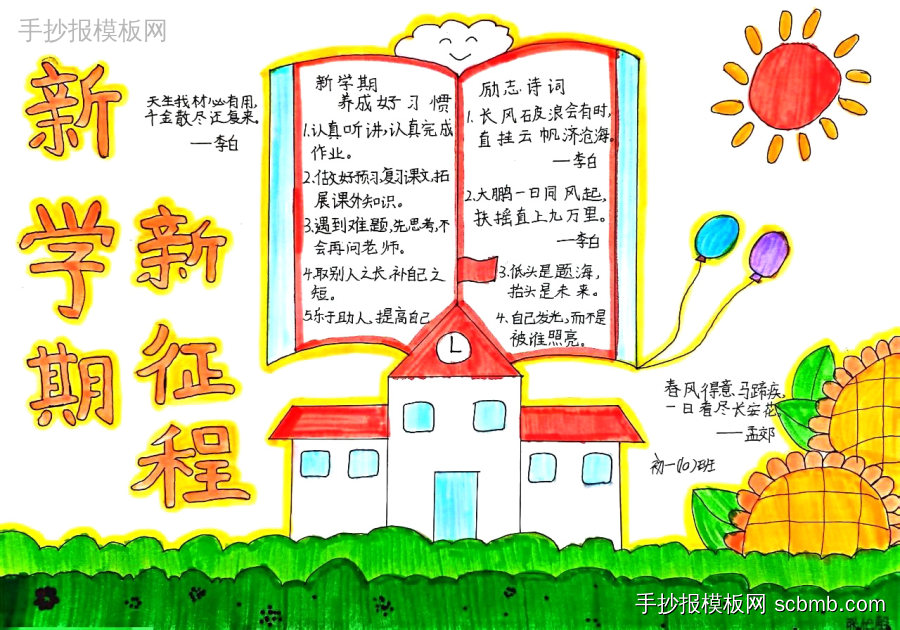 手抄报模板网
新学期
新征程
天生我材必有用,
千金散尽还复来。
——李白
新学期
养成好习惯
1.认真听讲,认真完成
作业。
2.做好预习,复习课文,拓
展课外知识。
3.遇到难题,先思考,不
会再问老师。
4.取别人之长,补自己之
短。
5.乐于助人,提高自己
励志诗词
1.长风破浪会有时,
直挂云帆济沧海。
——李白
2.大鹏一日同风起,
扶摇直上九万里。
——李白
3.低头是题海,
抬头是未来。
4.自己发光,而不是
被谁照亮。
春风得意马蹄疾,
一日看尽长安花
——孟郊
初一(10)班
手抄报模板网 scbmb.com